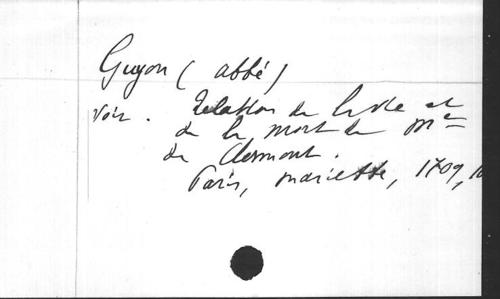 Guyon (abbé)
voir. Relation de la vie et
de la mort de Mme
de Clermont.
Paris, Mariette, 1709,